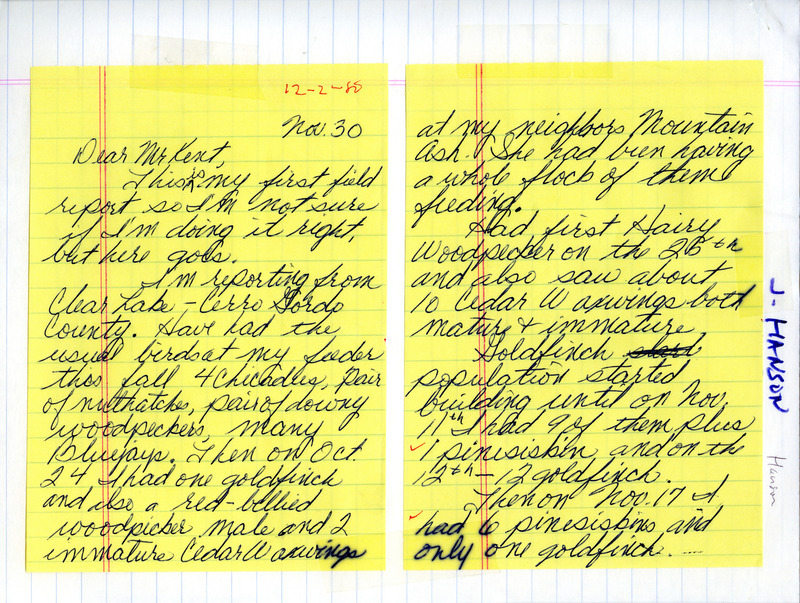 12-2-88
Nov. 30
Dear Mr Kent,
This is my first field
report so I'm not sure
if I'm doing it right,
but here goes.
I'm reporting from
Clear Lake - Cerro Gordo
County. Have had the
usual birds at my feeder
this fall 4 Chicadees, Pair
of nuthatches, pair of downy
woodpeckers, many
Bluejays. Then on Oct.
24 I had one goldfinch
and also a red-bellied
woodpecker male and 2
immature Cedar Waxwings
at my neighbors Mountain
Ash. She had been having
a whole flock of them
feeding.
Had first Hairy
Woodpecker on the 25th
and also saw about
10 Cedar Waxwings both
mature & immature
Goldfinch
population started
building until on Nov.
11th I had 9 of them plus
1 pinesiskin, and on the
12th - 12 goldfinch.
Then on Nov. 17 I
had 6 pinesiskins and
only one goldfinch.
J. HANSON
Hanson